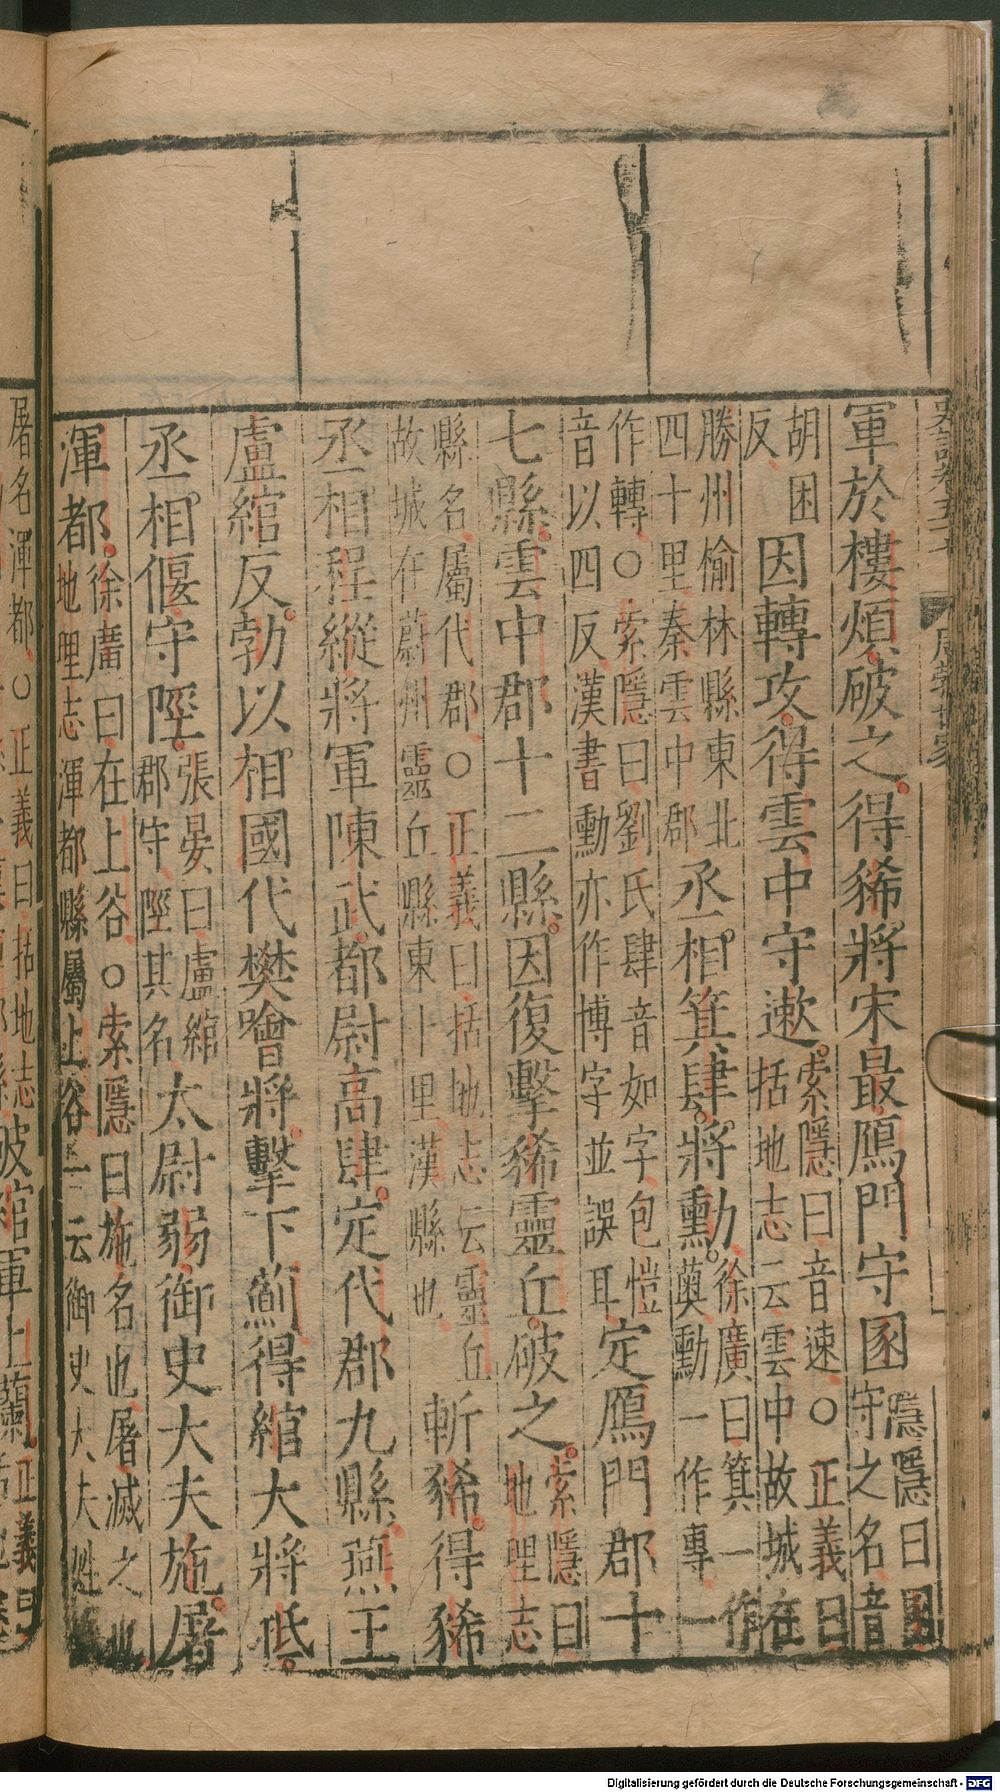 史記卷五十七 周勃世家
軍於樓煩破之得豨將宋最鴈門守圂隱隱曰圂守之名音
胡困反因轉攻得雲中守遬索隱曰音速○正義曰括地志云雲中故城在
勝州榆林縣東北四十里秦雲中郡丞相箕肆將勳徐廣曰箕一作薁勳一作專一
作轉○索隱曰劉氏肆音如字包愷音以四反漢書勳亦作博字並誤耳定鴈門郡十
七縣雲中郡十二縣因復擊豨靈丘破之索隱曰地理志
縣名屬代郡○正義曰括地志云靈丘故城在蔚州靈丘縣東十里漢縣也斬豨得豨
丞相程縱將軍陳武都尉高肆定代郡九縣燕王
盧綰反勃以相國代樊噲將擊下薊得綰大將抵
丞相偃守陘張晏曰盧綰郡守陘其名太尉弱御史大夫施屠
渾都徐廣曰在上谷○索隱曰施名也屠滅之也地理志渾都縣屬上谷一云御史大夫姓
屠名渾都○正義曰括地志
破綰軍上蘭正義曰
Digitalisierung gefördert durch die Deutsche Forschungsgemeinschaft - DFG